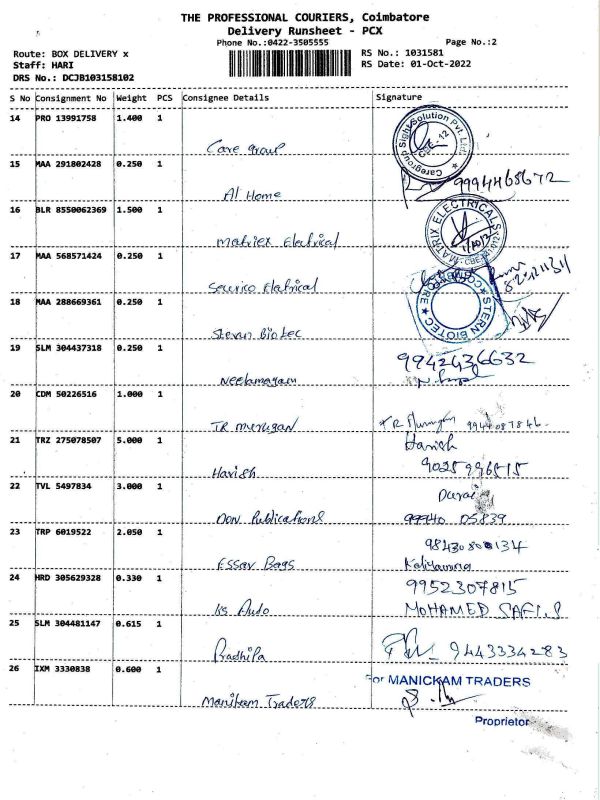 THE PROFESSIONAL COURIERS, Coimbatore
Delivery Runsheet - PCX
Phone No.:0422-3505555 Page No.:2
Route: BOX DELIVERY x RS No.: 1031581
Staff: HARI RS Date: 01-Oct-2022
DRS No.: DCJB103158102
S No Consignment No Weight PCS Consignee Details Signature
14 PRO 13991758 1.400 1
Caregroup Sight Solution Pvt. Ltd. CBE-12
Care group
15 MAA 291802428 0.250 1
9994468672
At Home
16 BLR 8550062369 1.500 1
MATRIX ELECTRICALS
Matriex Electrical
17 MAA 568571424 0.250 1
Securico Elatrical
18 MAA 288669361 0.250 1
STERN BIOTEC COIMBATORE
Stevan Biotec
19 SLM 304437318 0.250 1
9942436632
Neelamegam
20 CDM 50226516 1.000 1
TR murugan
T R Murugan 9944087846
21 TRZ 275078507 5.000 1
Harish
9025996515
Harish
22 TVL 5497834 3.000 1
Durai
Don Publications 99940 05839
23 TRP 6019522 2.050 1
Essar Bags
24 HRD 305629328 0.330 1
9952307815
KS Auto MOHAMED SAFI.S
25 SLM 304481147 0.615 1
9443334283
Pradhipa
26 IXM 3330838 0.600 1
For MANICKAM TRADERS
Manikam Traders
Proprietor